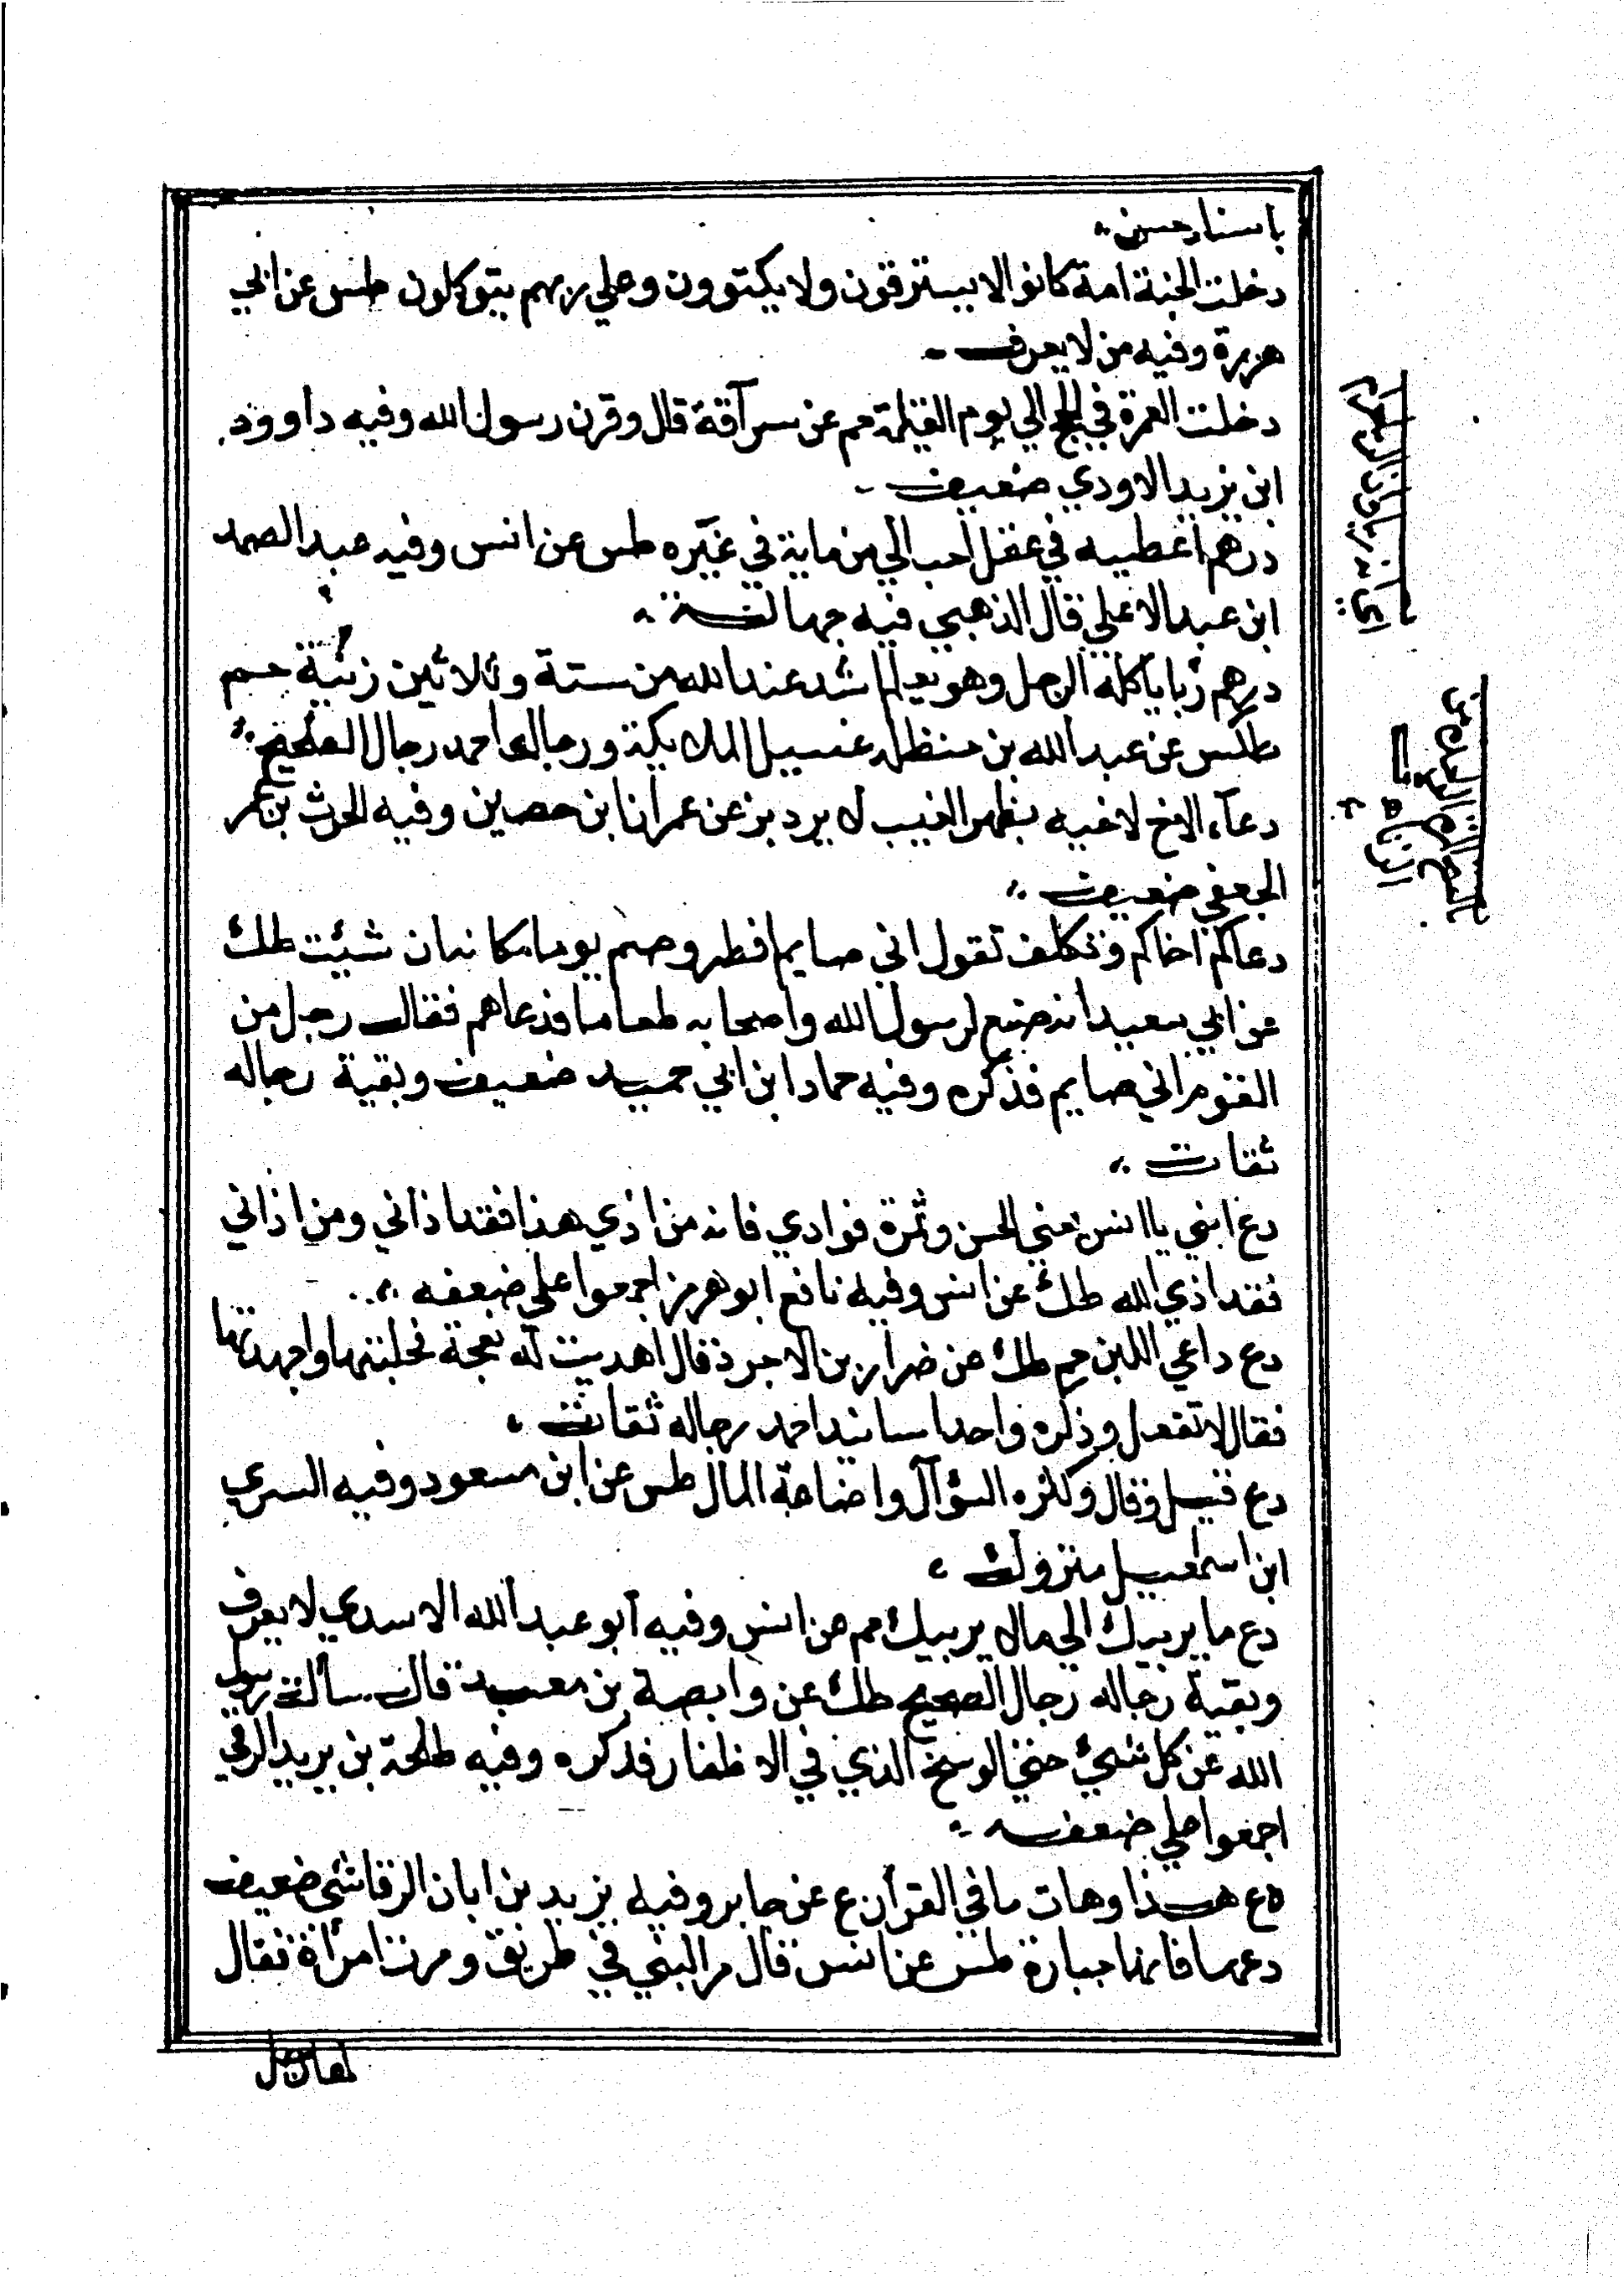 باسناد حسن
دخلت الجنة امة كانوا لا يسترقون ولا يكتوون وعلي ربهم يتوكلون طس عن ابي
هريرة وفيه من لا يعرف
دخلت العمرة في الحج الي يوم القيمة حم عن سراقة قال وقرن رسول الله وفيه داوود
ابن يزيد الاودي ضعيف
درهم اعطيه في عقل احب الي من ماية في غيره طس عن انس وفيه عبد الصمد
ابن عبد الاعلي قال الذهبي فيه جهالة
درهم ربا ياكله الرجل وهو يعلم اشد عند الله من ستة وثلاثين زنية حم
طكس عن عبد الله بن حنظلة غسيل الملايكة ورجال احمد رجال الصحيح
دعآء الاخ لاخيه بظهر الغيب لا يرد بز عن عمران ابن حصين وفيه الحرث بن عمر
الجعفي ضعيف
دعاكم اخاكم وتكلف تقول اني صايم افطر وصم يوما مكانه ان شيئت طك
عن ابي سعيد انه صنع لرسول الله واصحابه طعاما فدعاهم فقال رجل من
القوم اني صايم فذكره وفيه حماد ابن ابي حميد ضعيف وبقية رجاله
ثقات
دع ابني يا انس يعني الحسن وثمرة فوادي فانه من اذي هذا فقد اذاني ومن اذاني
فقد اذي الله طك عن انس وفيه نافع ابو هرمز اجمعوا علي ضعفه
دع داعي اللبن حم طك عن ضرار بن الازور قال اهديت له نعجة فحلبتها واجهدتها
فقال لا تفعل وذكره واحد اسانيد احمد رجاله ثقات
دع قيل وقال وكثره السؤآل واضاعة المال طس عن ابن مسعود وفيه السري
ابن اسمعيل متروك
دع ما يريبك الي مالا يريبك حم عن انس وفيه ابو عبد الله الاسدي لا يعرف
وبقية رجاله رجال الصحيح طك عن وابصة بن معبد قال سألت رسول
الله عن كل شيئ حتي الوسخ الذي في الاظفار فذكره وفيه طلحة بن يزيد الرقي
اجمعوا علي ضعفه
دع هذا وهات ما في القرآن ع عن جابر وفيه يزيد بن ابان الرقاشي ضعيف
دعها فانها جبارة طس عن انس قال مر النبي في طريق ومرت امرأة فقال
لها رجل